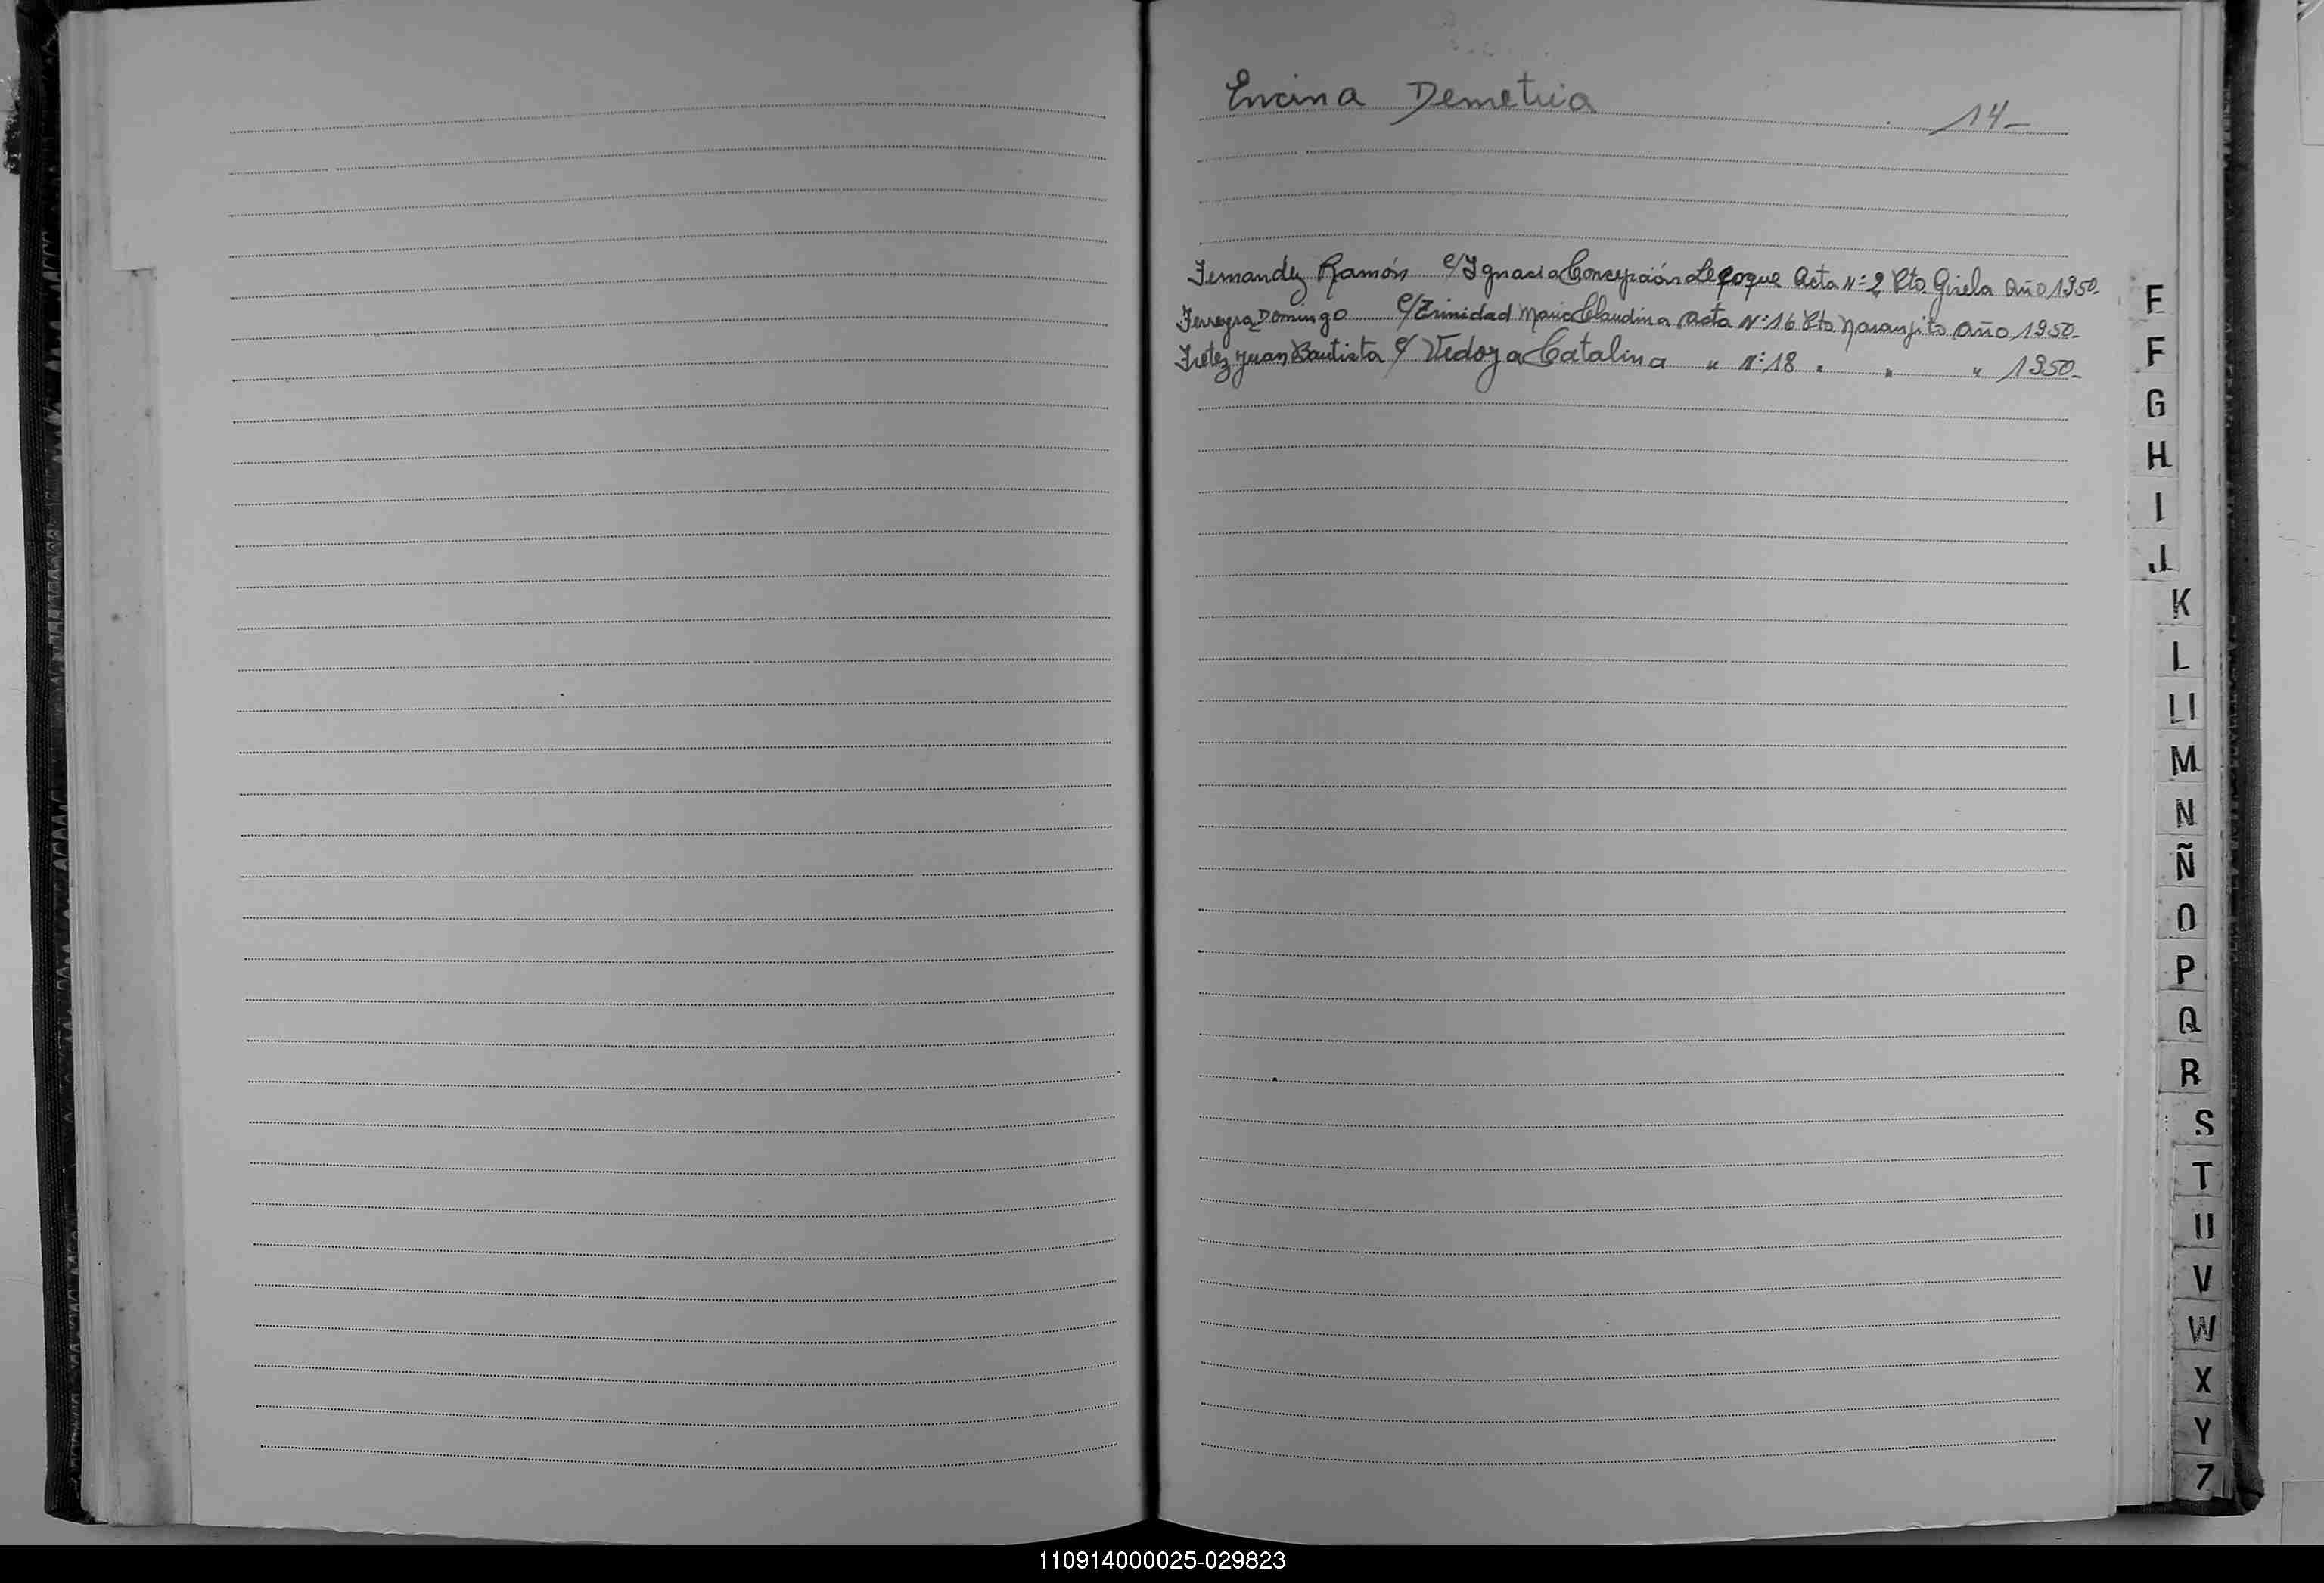 Encina Demetria 14-
Fernandez Ramón c/Ignacia Concepción Lecoque Acta Nº 2 Pto Gisela Año 1950-
Ferreyra Domingo c/Trinidad Maria Claudina Acta Nº 16 Pto Naranjito Año 1950-
Fretez Juan Bautista c/ Vedoya Catalina " Nº 18 " " " 1950-
E
F
G
H
I
J
K
L
Ll
M
N
Ñ
O
P
Q
R
S
T
U
V
W
X
Y
Z
110914000025-029823